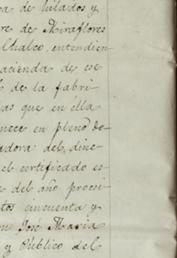 ca de hilados y
re de Miraflores
Chalco, entendien
acienda de ese
de la fabri
as que en élla
nece en pleno do
adora del, dine
el certificado es
del año procsi
tos cincuenta y
José Maria
y Público del